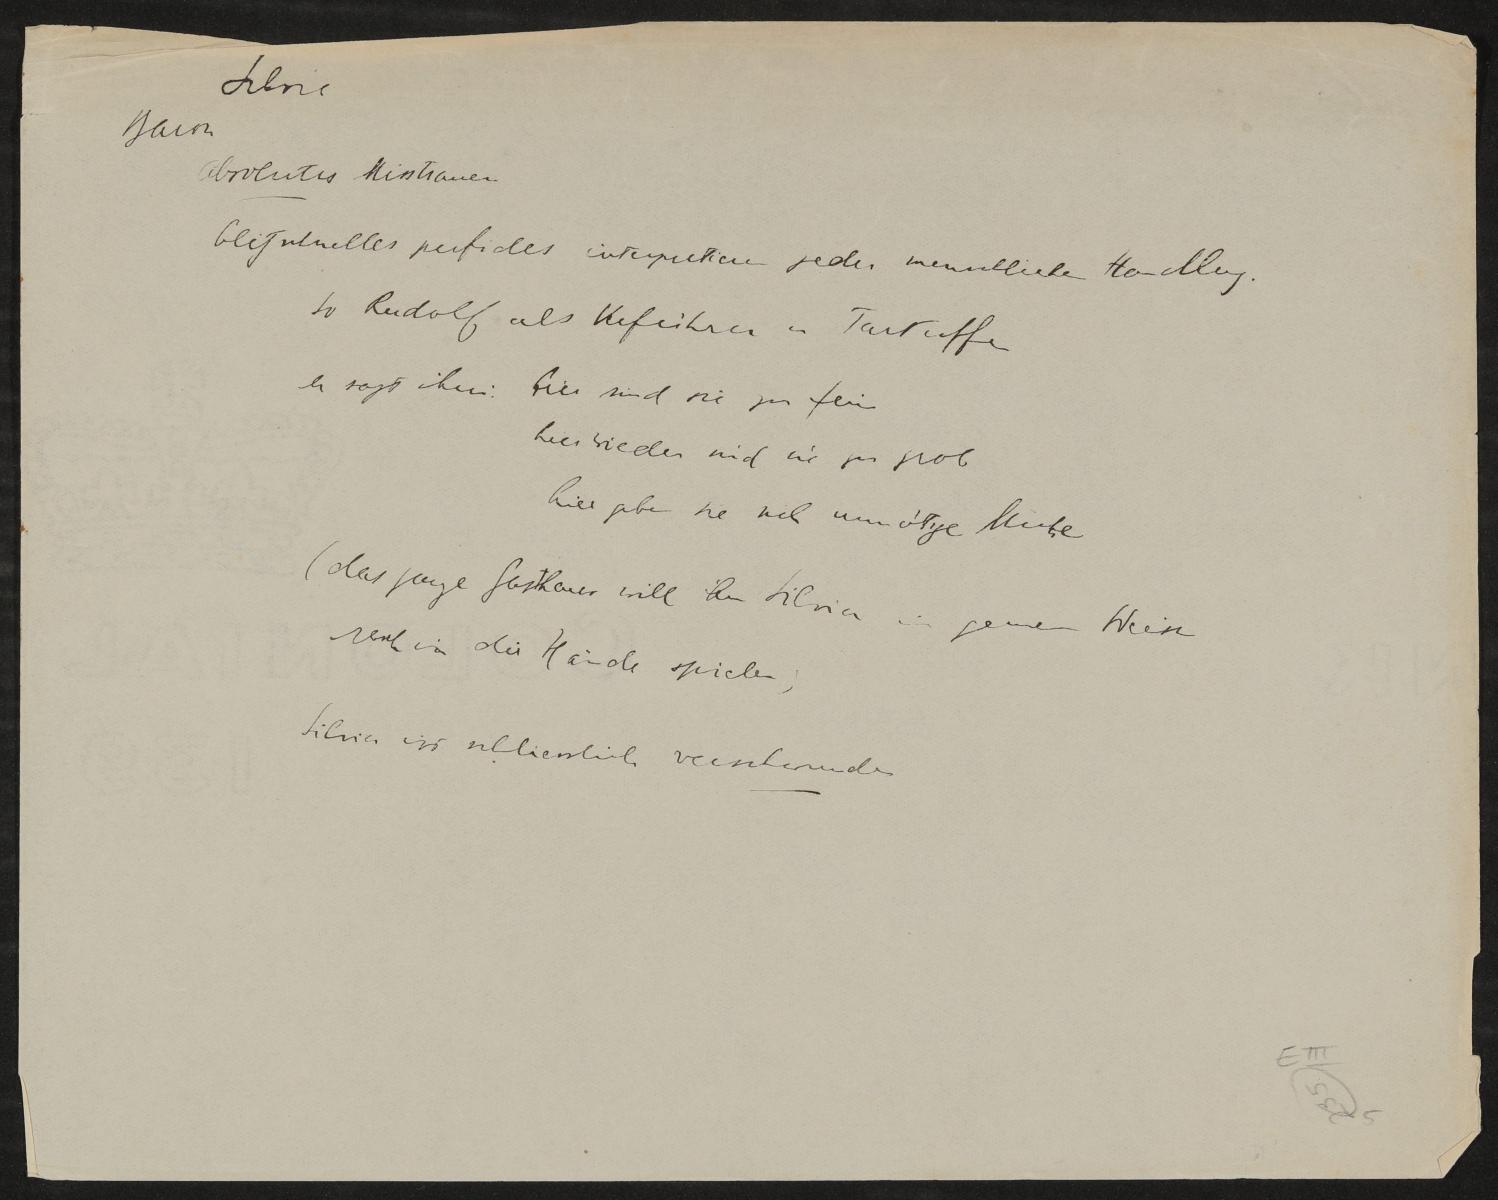 Silvia
Baron
absolutes Misstrauen
perfides interpretieren jeder menschlichen Handlung.
so Rudolf als Verführer u Tartuffe
er sagt ihm: hier sind sie zu fein
hier wieder sind sie zu grob
hier geben sie sich unnötige Mühe
(das ganze Gasthaus will ihm Silvia in Weise
in die Hände spielen;
Silvia ist schliesslich verschwunden
E III
5